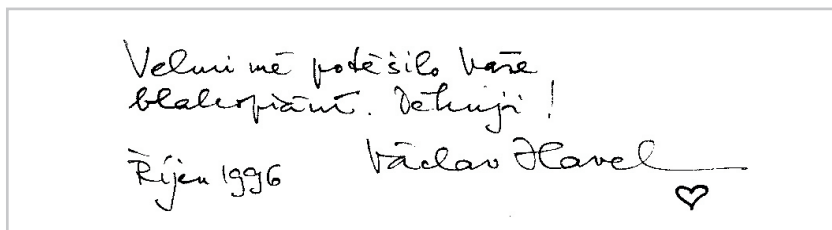 Velmi mě potěšilo Vaše
blahopřání. Děkuji!
Říjen 1996 Václav Havel